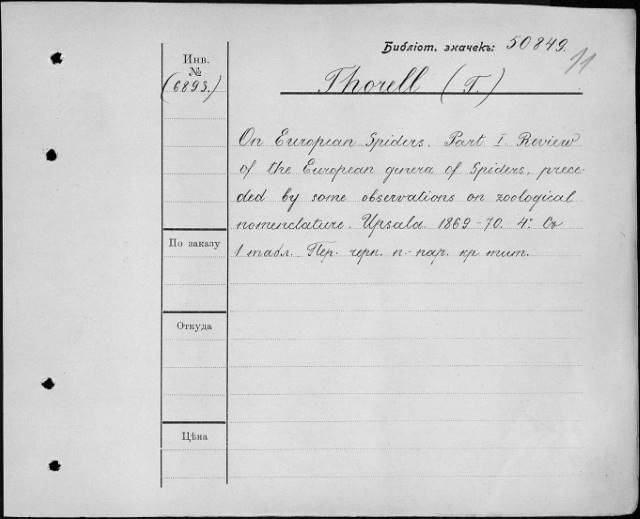 Библіот. значекъ: 50849.
11
Инв.
№
(6893.)
Thorell (T.)
On European Spiders. Part I. Review
of the European genera of Spiders, prece-
ded by some observations on zoological
nomenclature. Upsala. 1869-70. 4°. Съ
1 табл. Пер. черн. п.-пар. кр тит.
По заказу
Откуда
Цѣна